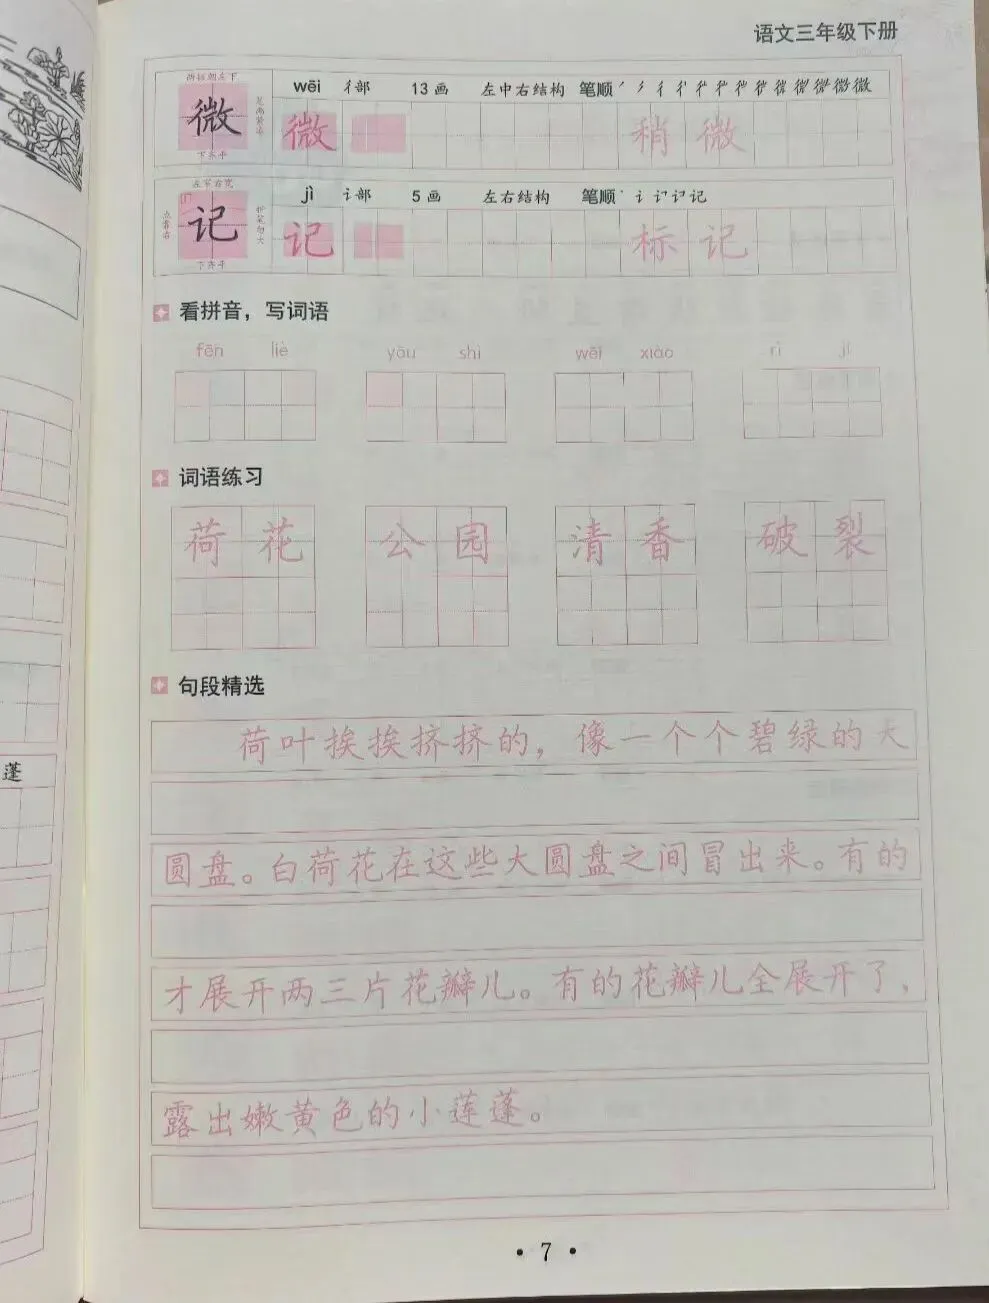 语文三年级下册
两短朝左下
微
下齐平
wēi 彳部 13画 左中右结构 笔顺
微 稍微
左窄右宽
记
点靠右
下齐平
jì 讠部 5画 左右结构 笔顺
记 标记
看拼音，写词语
fēn liè yòu shì wēi xiào rì jì
词语练习
荷花 公园 清香 破裂
句段精选
荷叶挨挨挤挤的，像一个个碧绿的大
圆盘。白荷花在这些大圆盘之间冒出来。有的
才展开两三片花瓣儿。有的花瓣儿全展开了，
露出嫩黄色的小莲蓬。
蓬
· 7 ·